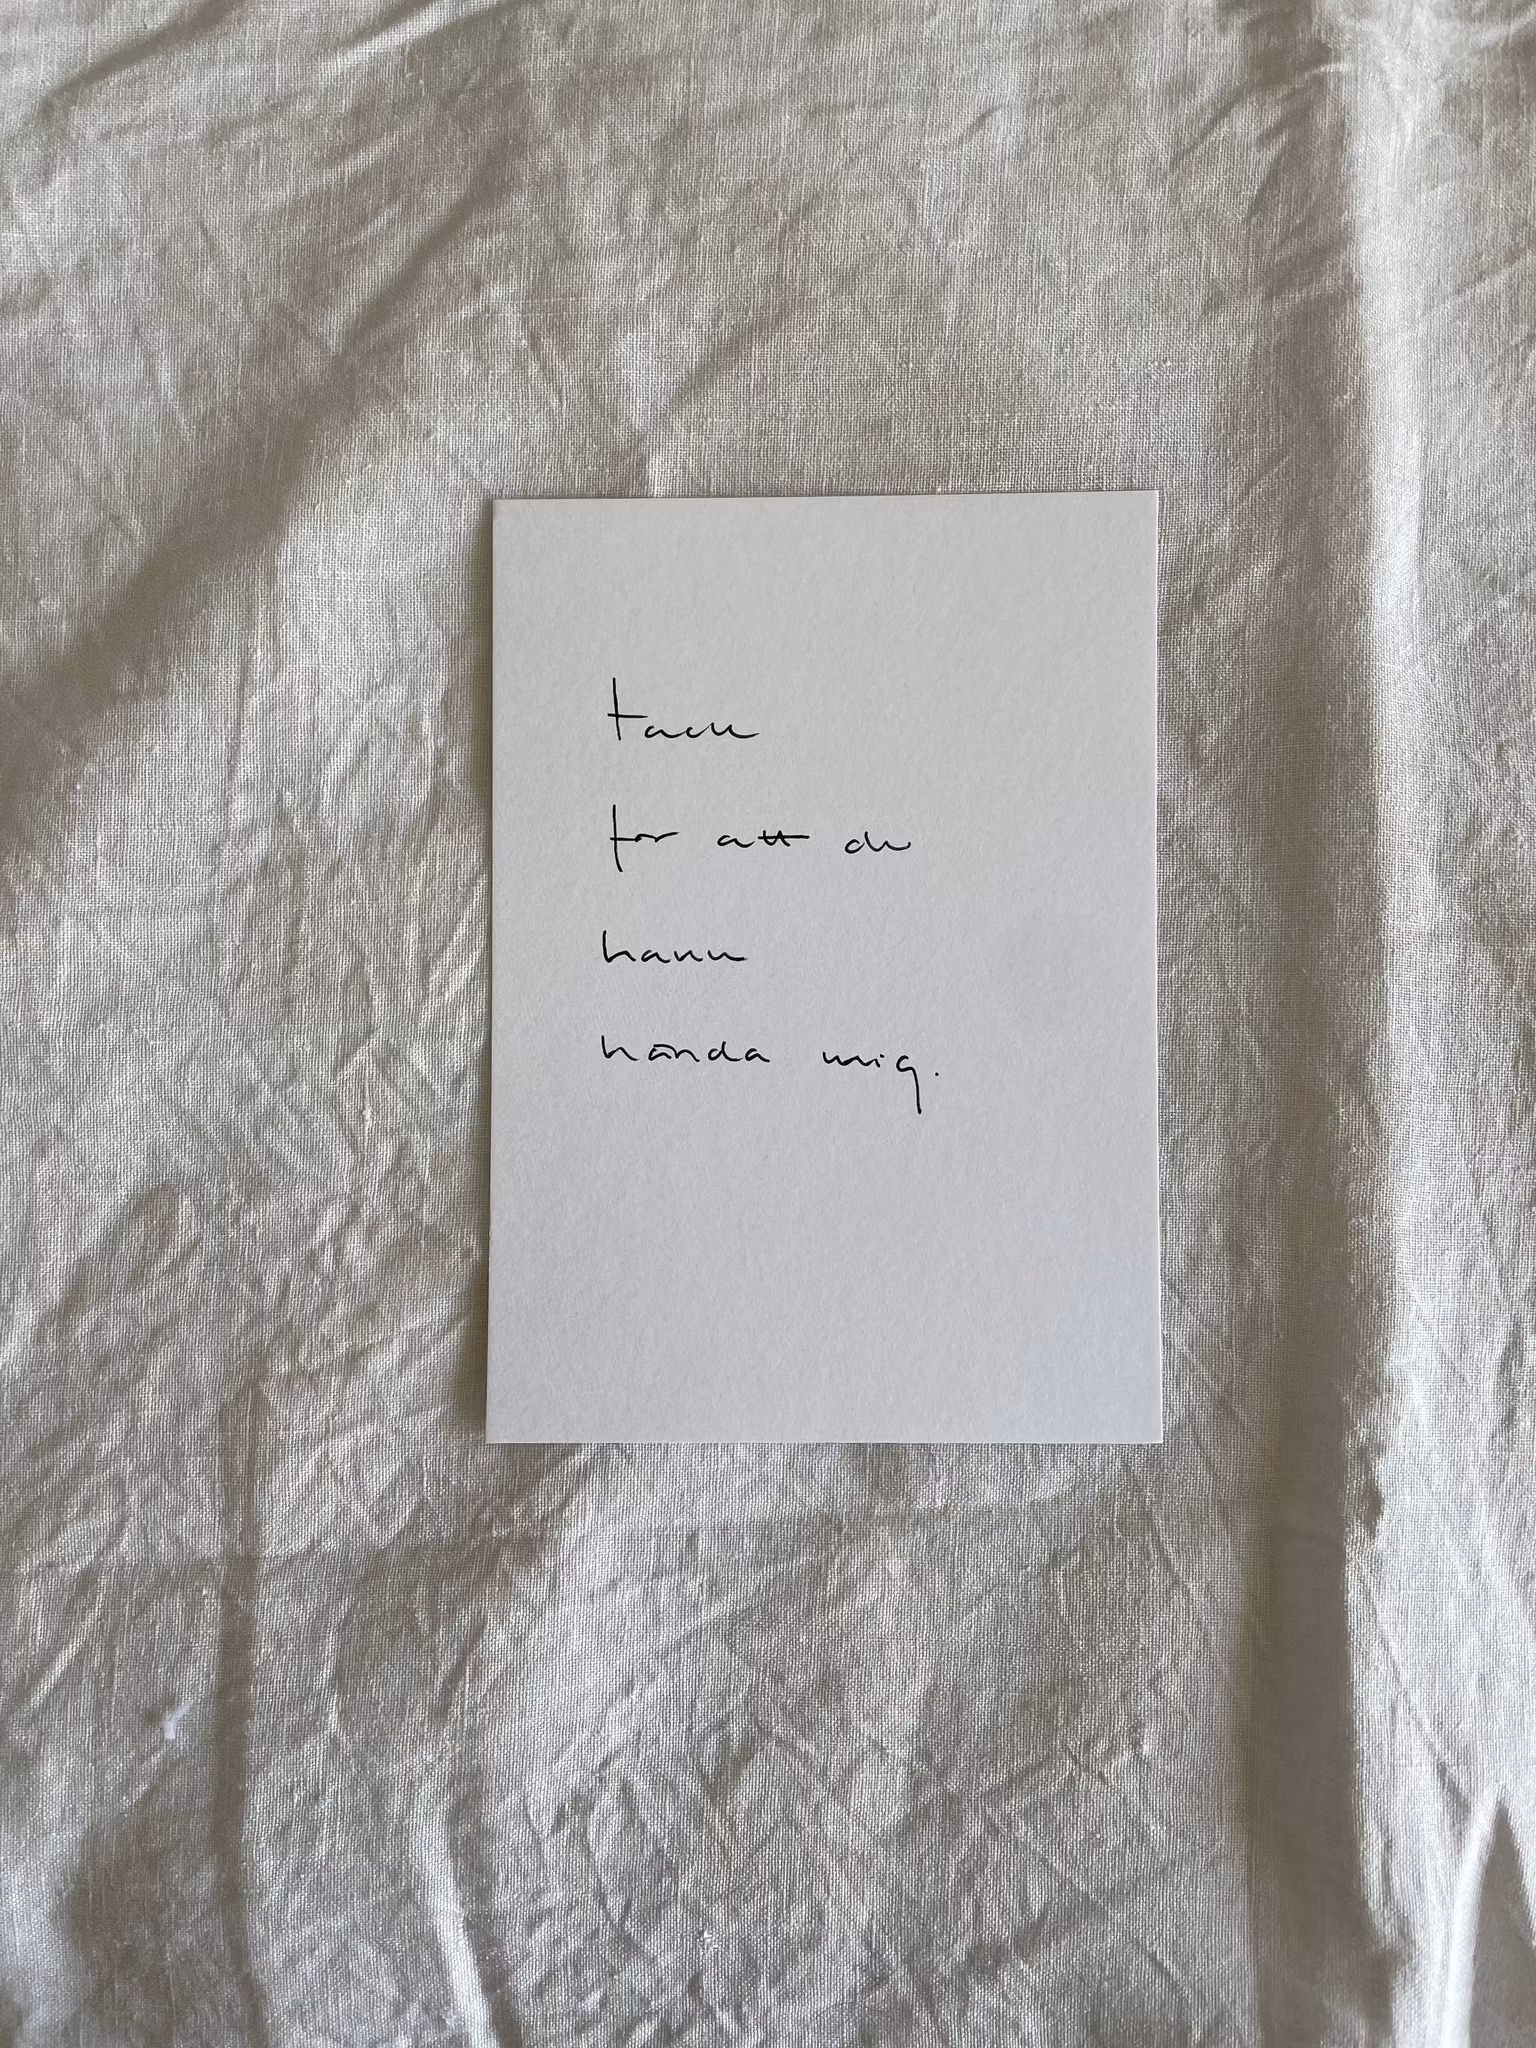 tack
för att du
hann
hända mig.